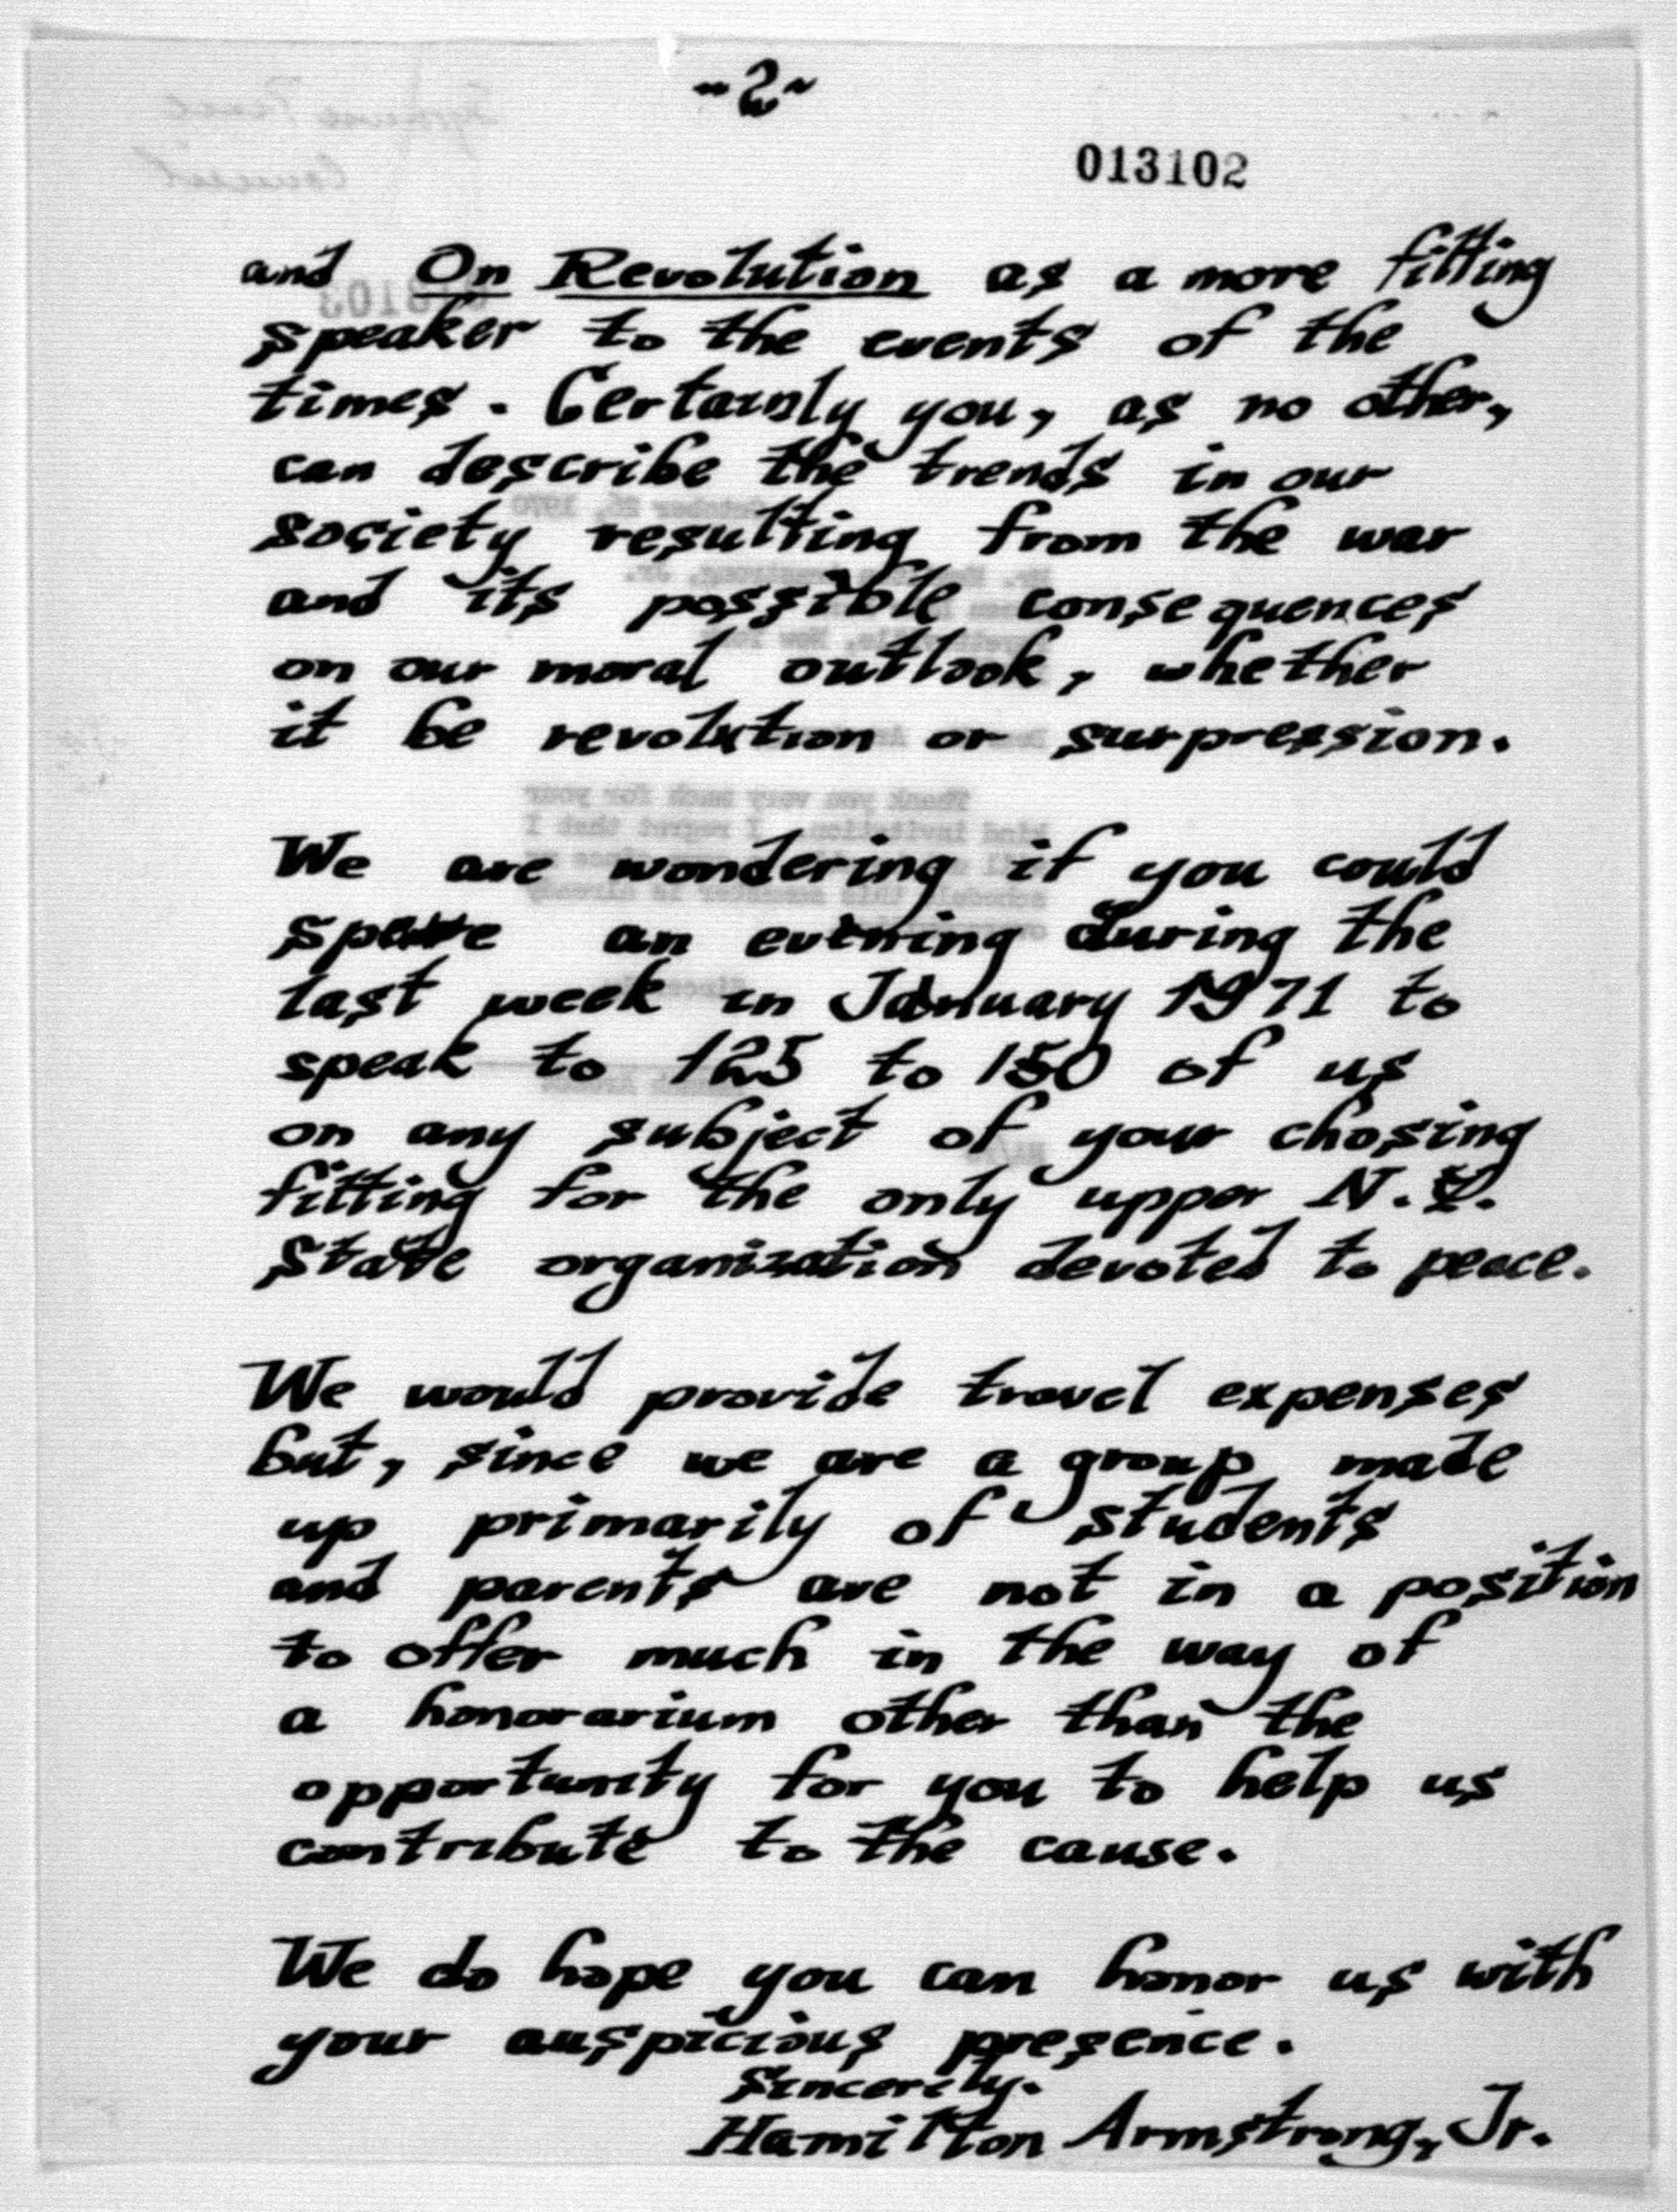 -2-
013102
and On Revolution as a more fitting
speaker to the events of the
times. Certainly you, as no other,
can describe the trends in our
society resulting from the war
and its possible consequences
on our moral outlook, whether
it be revolution or surpression.
We are wondering if you could
spare an evening during the
last week in January 1971 to
speak to 125 to 150 of us
on any subject of your chosing
fitting for the only upper N.Y.
State organization devoted to peace.
We would provide travel expenses
but, since we are a group made
up primarily of students
and parents are not in a position
to offer much in the way of
a honorarium other than the
opportunity for you to help us
contribute to the cause.
We do hope you can honor us with
your auspicious presence.
Sincerely.
Hamilton Armstrong, Jr.